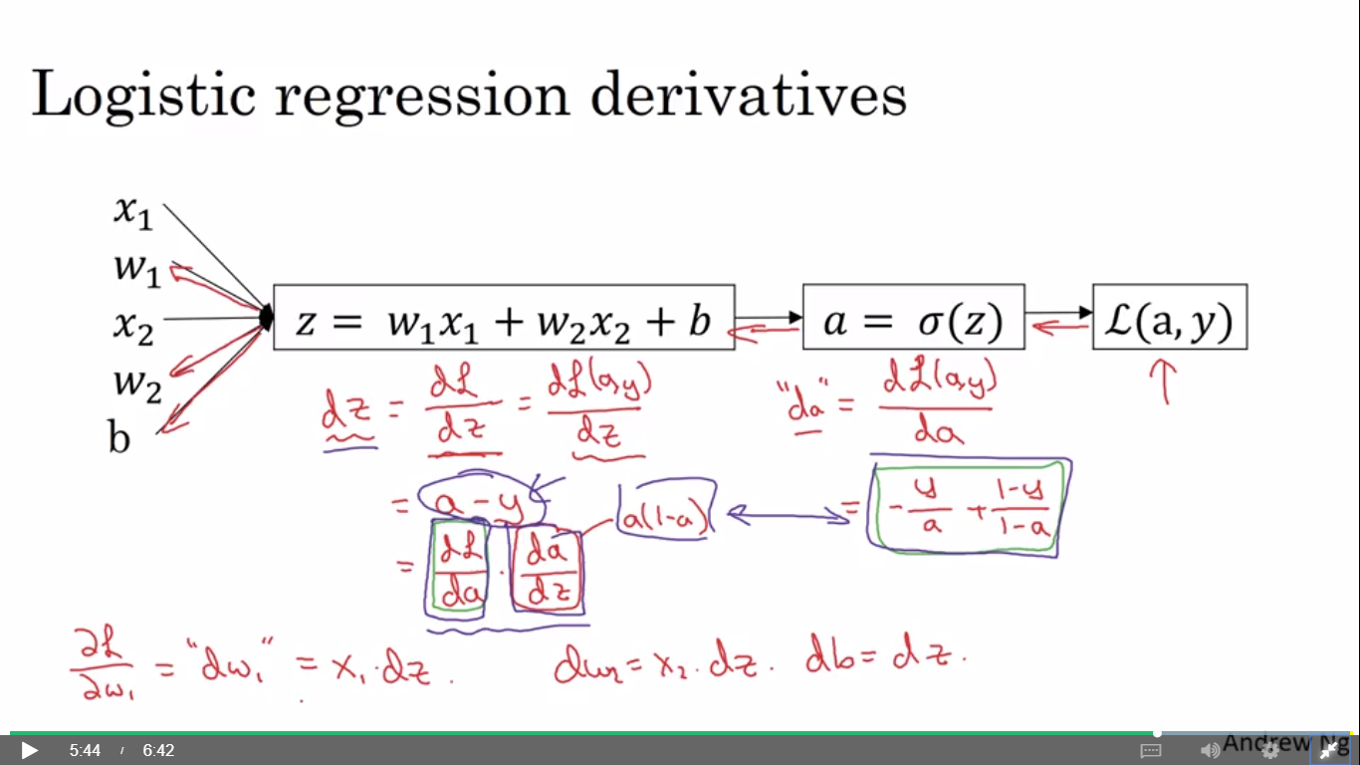 Logistic regression derivatives
x₁
w₁
x₂
w₂
b
z = w₁x₁ + w₂x₂ + b
a = σ(z)
ℒ(a, y)
dz = dℒ/dz = dℒ(a,y)/dz
"da" = dℒ(a,y)/da
= a - y
a(1-a)
= -y/a + (1-y)/(1-a)
= dℒ/da · da/dz
∂ℒ/∂w₁ = "dw₁" = x₁·dz.
dw₂ = x₂·dz.
db = dz.
5:44 / 6:42
Andrew Ng